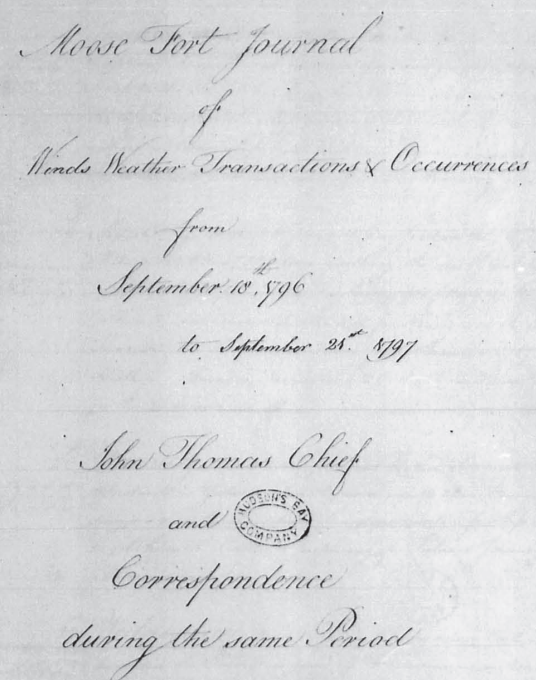 Moose Fort Journal
of
Winds Weather Transactions & Occurrences
from
September 18th 1796
to September 21st 1797
John Thomas Chief
and
HUDSON'S BAY COMPANY
Correspondence
during the same Period